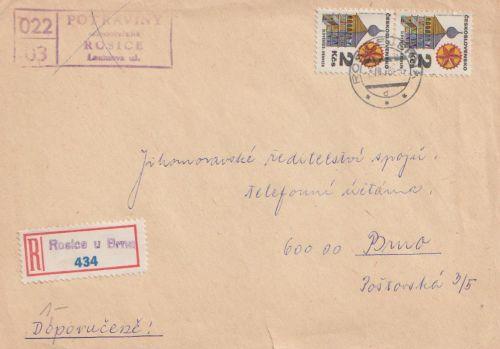 022
03
POTRAVINY
ROSICE
Leninova ul.
ČESKOSLOVENSKO
2
Kčs
ČESKOSLOVENSKO
2
Kčs
Jihomoravské ředitelství spojů,
telefonní účtárna.
600 00 Brno
Poštovská 3/5
R
Rosice u Brna
434
1-
Doporučeně!